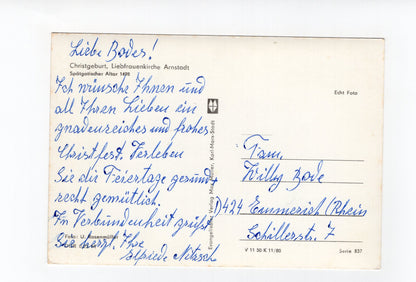 Liebe Bodes!
Christgeburt, Liebfrauenkirche Arnstadt
Spätgotischer Altar 1498
Ich wünsche Ihnen und
all Ihren Lieben ein
gnadenreiches und frohes
Christfest. Verleben
Sie die Feiertage gesund,
recht gemütlich.
In Verbundenheit grüßt
Sie herzl. Ihre
Elfriede
Foto: U.
Evangelischer Verlag Max Müller, Karl-Marx-Stadt
Echt Foto
Fam.
Willy Bode
D 424 Emmerich (Rhein
Schillerstr. 7
V 11 50 K 11/80
Serie 837